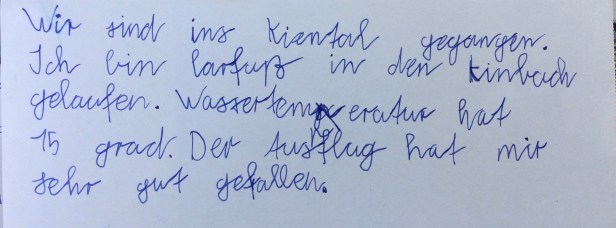 Wir sind ins Kiental gegangen.
Ich bin barfuß in den Kinbach
gelaufen. Wassertemperatur hat
15 grad. Der Ausflug hat mir
sehr gut gefallen.